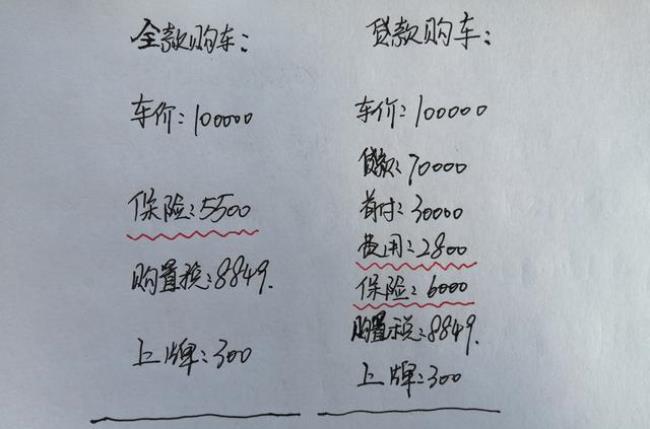 全款购车:
车价:100000
保险:5500
购置税:8849.
上牌:300
贷款购车:
车价:100000
贷款:70000
首付:30000
费用:2800
保险:6000
购置税:8849.
上牌:300